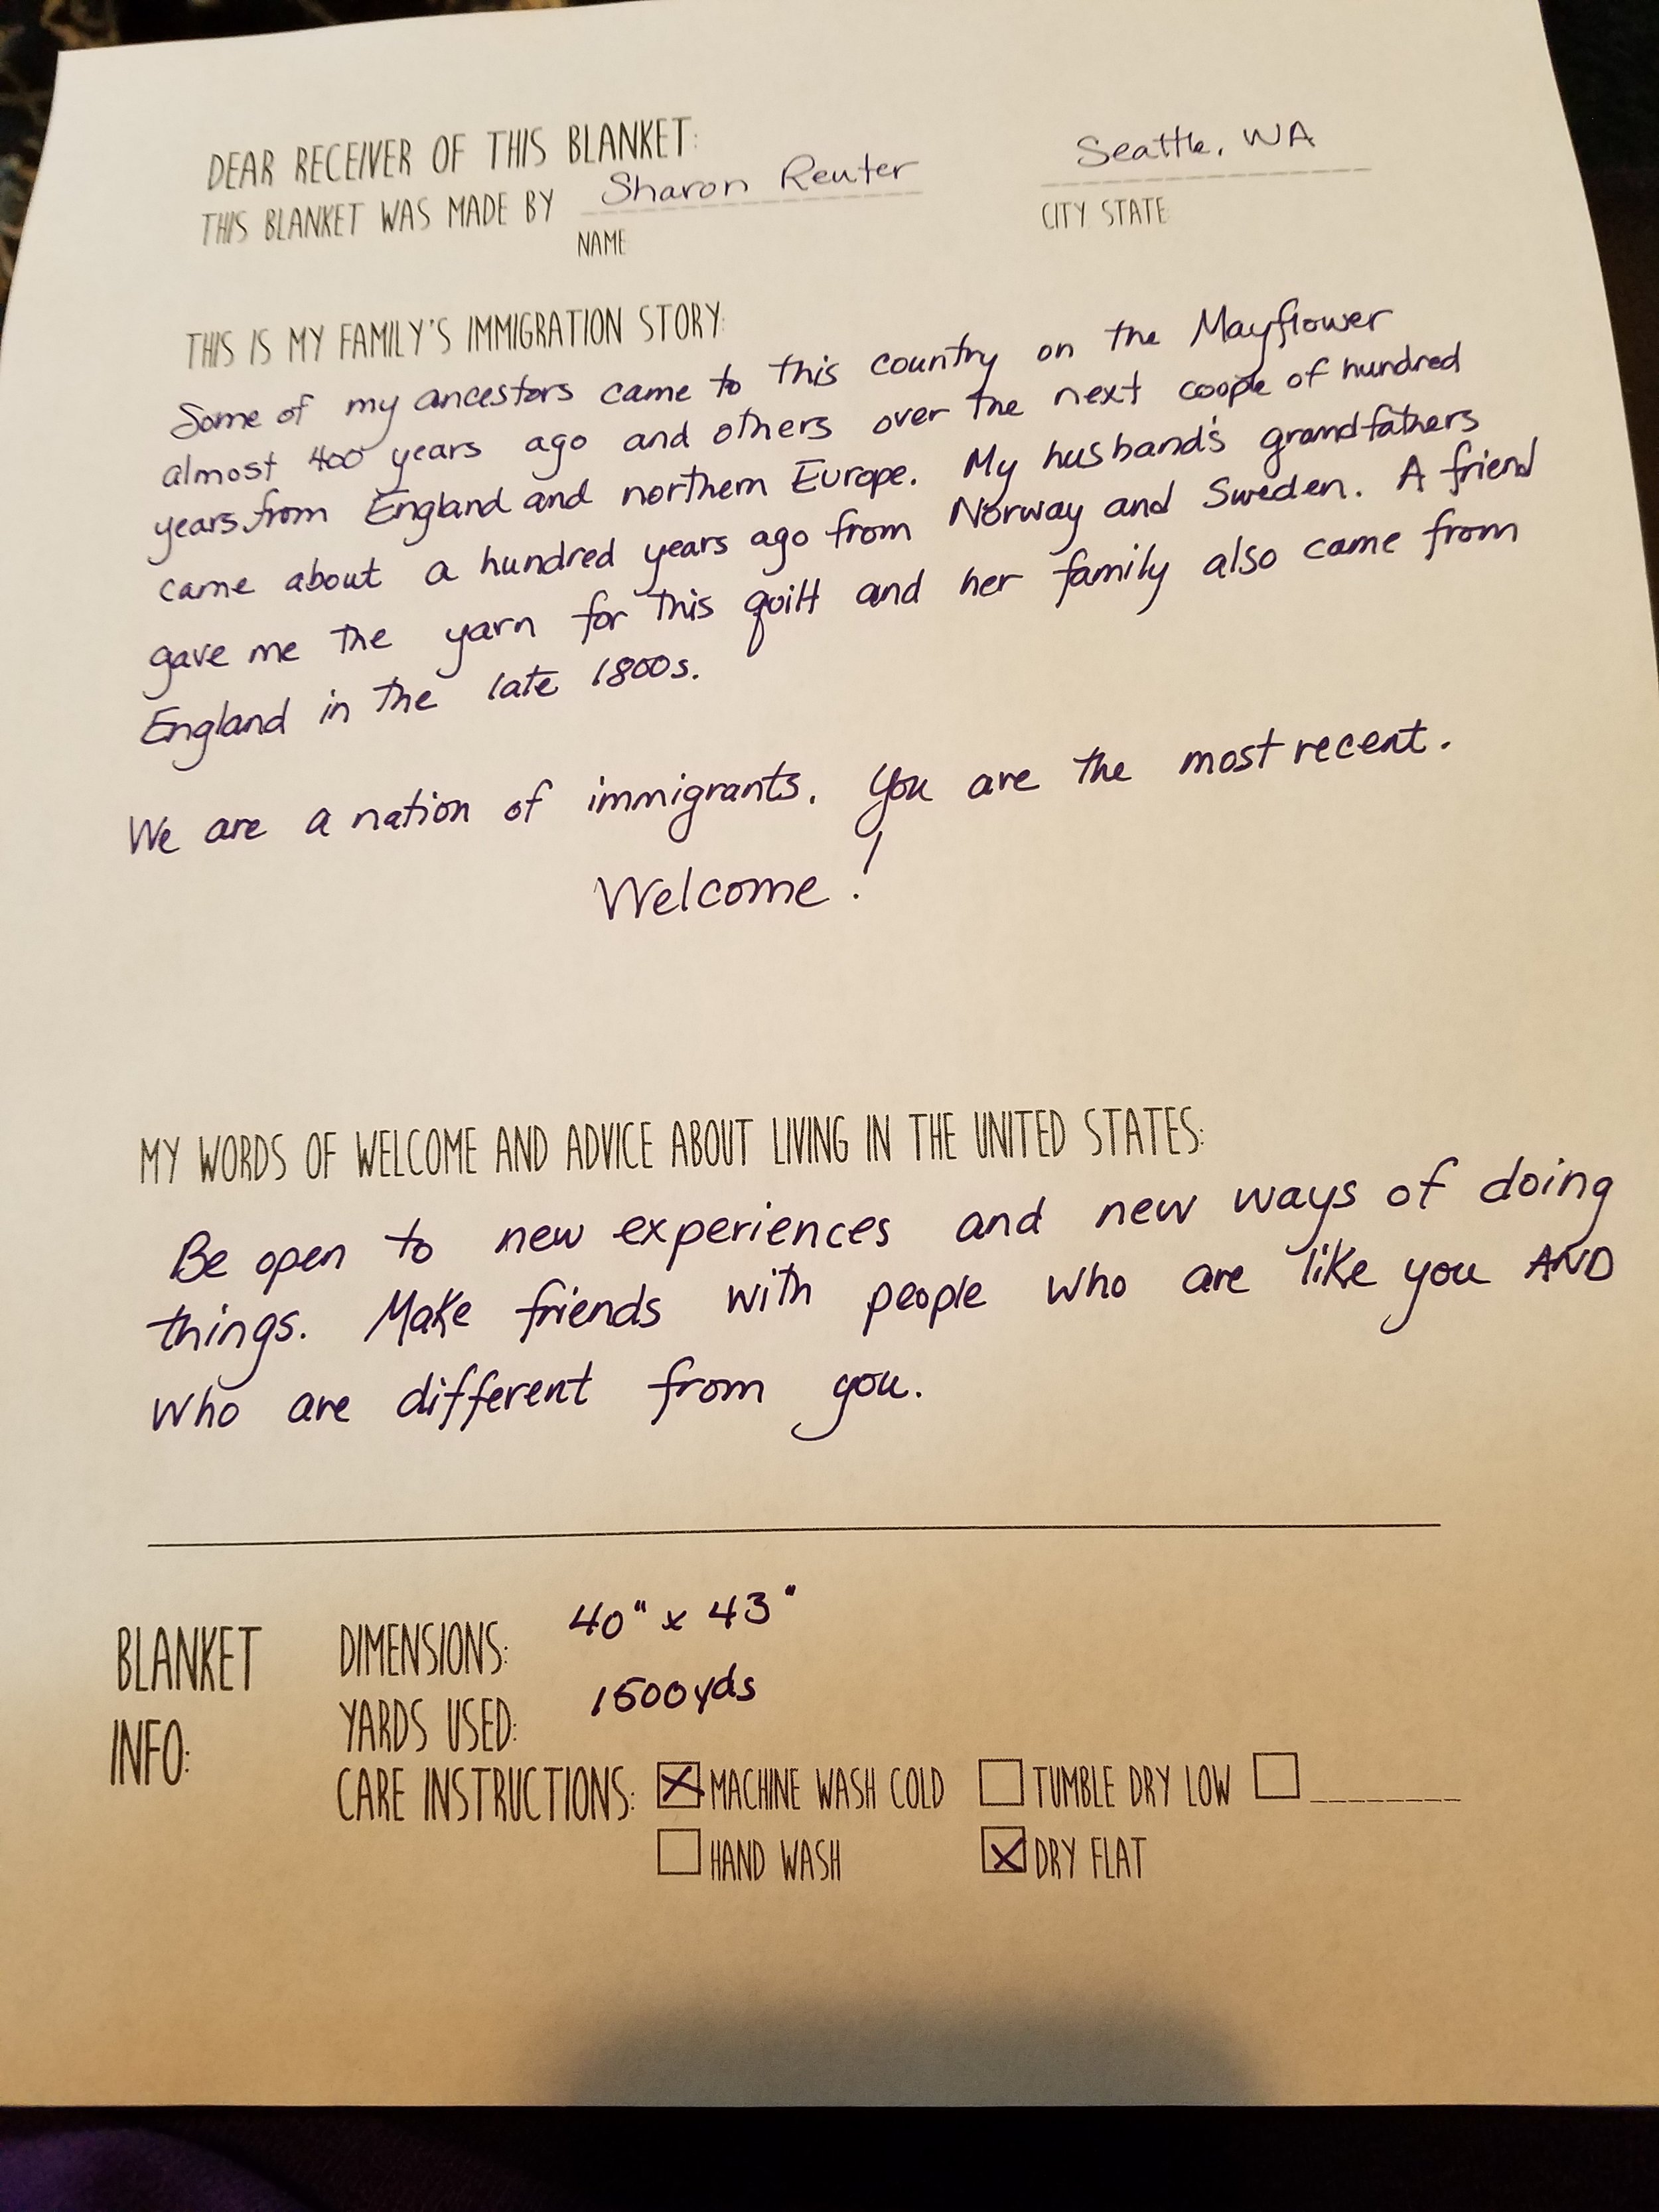 DEAR RECEIVER OF THIS BLANKET:
THIS BLANKET WAS MADE BY Sharon Reuter Seattle, WA
NAME CITY STATE
THIS IS MY FAMILY'S IMMIGRATION STORY:
Some of my ancestors came to this country on the Mayflower
almost 400 years ago and others over the next couple of hundred
years from England and northern Europe. My husband's grandfathers
came about a hundred years ago from Norway and Sweden. A friend
gave me the yarn for this quilt and her family also came from
England in the late 1800s.
We are a nation of immigrants. You are the most recent.
Welcome!
MY WORDS OF WELCOME AND ADVICE ABOUT LIVING IN THE UNITED STATES:
Be open to new experiences and new ways of doing
things. Make friends with people who are like you AND
who are different from you.
BLANKET INFO:
DIMENSIONS: 40" x 43"
YARDS USED: 1500yds
CARE INSTRUCTIONS: MACHINE WASH COLD TUMBLE DRY LOW
HAND WASH DRY FLAT